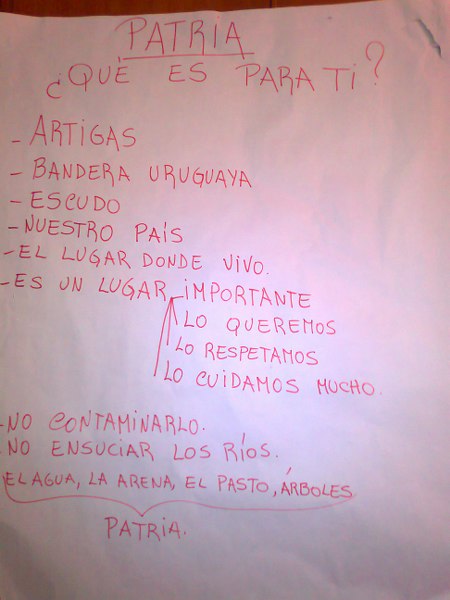 PATRIA
¿QUÉ ES PARA TI?
- ARTIGAS
- BANDERA URUGUAYA
- ESCUDO
- NUESTRO PAÍS
- EL LUGAR DONDE VIVO.
- ES UN LUGAR IMPORTANTE
LO QUEREMOS
LO RESPETAMOS
LO CUIDAMOS MUCHO.
- NO CONTAMINARLO.
- NO ENSUCIAR LOS RÍOS.
EL AGUA, LA ARENA, EL PASTO, ÁRBOLES
PATRIA.